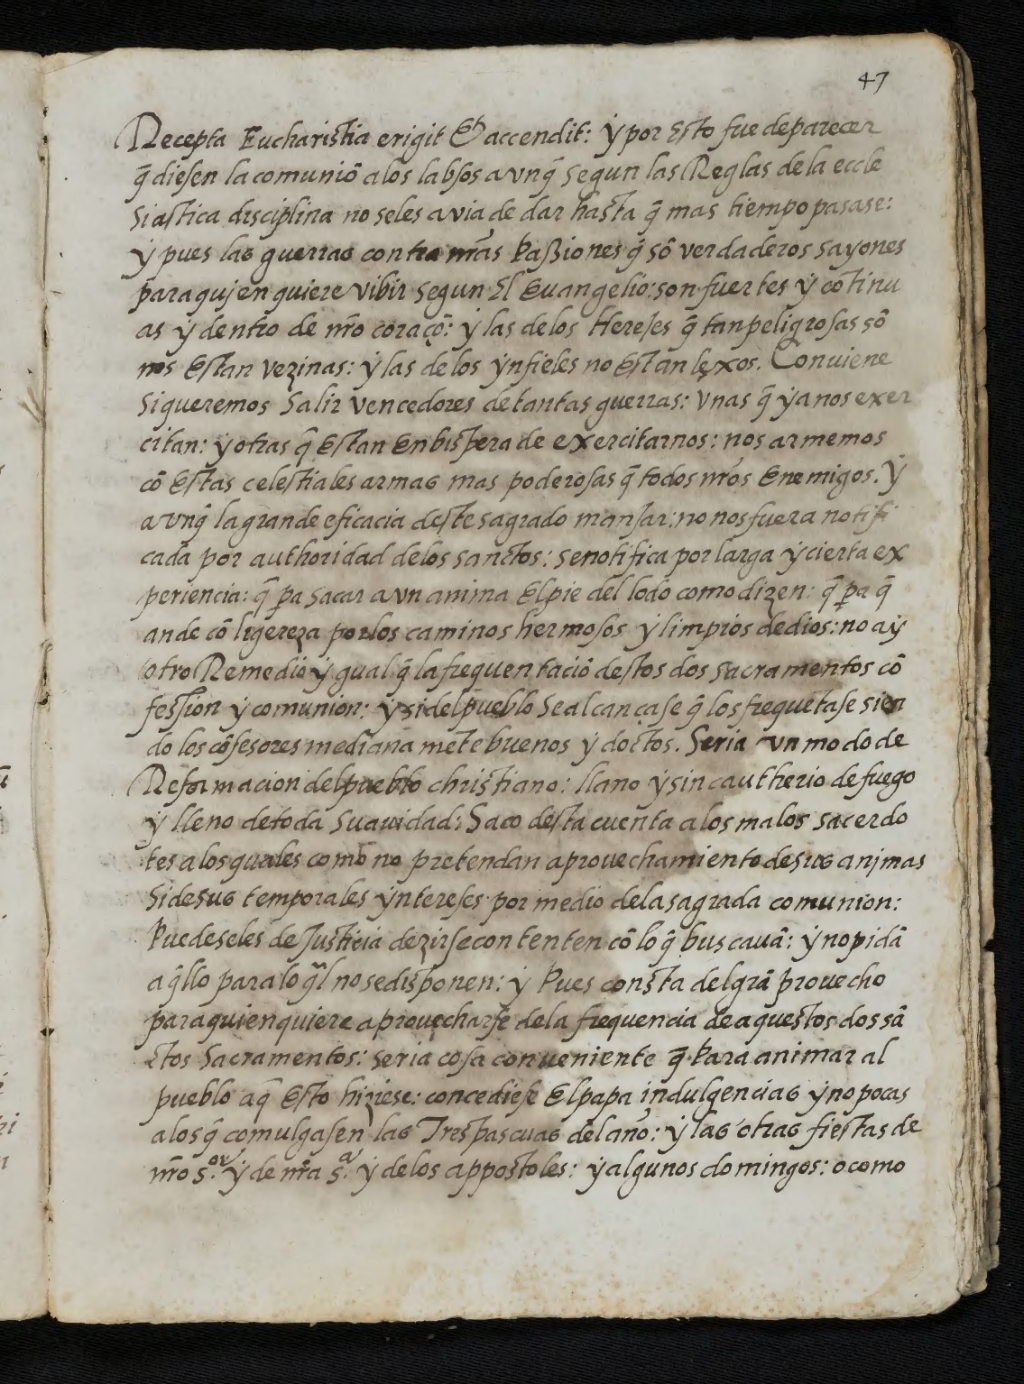 47
Recepta Eucharistia erigit & accendit: ẏ por Esto fue de parecer
q̃ diesen la comuniō a los labsos avnq̃ segun las Reglas de la eccle
siastica disciplina no se les avia de dar hasta q̃ mas tiempo pasase:
ẏ pues las guerras contra nr̃as Paßiones q̃ sō verdaderos sayones
para quien quiere vibir segun El Euangelio: son fuertes ẏ cōtinu
as ẏ dentro de nr̃o coraçō: ẏ las de los Hereses q̃ tan peligrosas sō
nos Estan vezinas: ẏ las de los ẏnfieles no Estan lexos. Conviene
si queremos salir vencedores de tantas guerras: vnas q̃ ẏa nos exer
citan: ẏ otras q̃ Estan En bispera de exercitarnos: nos armemos
cō Estas celestiales armas mas poderosas q̃ todos nr̃os Enemigos. Ẏ
avnq̃ la grande eficacia deste sagrado manjar: no nos fuera notifi
cada por authoridad de los sanctos: se notifica por larga ẏ cierta ex
periencia: q̃ p̄a sacar a vn anima El pie del lodo como dizen: q̃ p̄a q̃
ande cō ligereza por los caminos hermosos ẏ limpios de dios: no aẏ
otro Remedio ẏgual q̃ la frequentaciō destos dos sacramentos cō
fession ẏ comunion: ẏ si del pueblo se alcancase q̃ los frequētase sien
do los cōfesores mediana mēte buenos ẏ doctos. Seria vn modo de
Reformacion del pueblo christiano: llano ẏ sin cautherio de fuego
ẏ lleno de toda suavidad: Saco desta cuenta a los malos sacerdo
tes a los quales como no pretendan aprovechamiento de sus animas
si de sus temporales ẏntereses por medio de la sagrada comunion:
Puedeseles de Justicia dezir se contenten cō lo q̃ buscavā: ẏ no pidā
aq̃llo para lo q̃l no se disponen: ẏ Pues consta del grā provecho
para quien quiere aprovecharse de la frequencia de aquestos dos sā
ctos Sacramentos: seria cosa conveniente q̃ Para animar al
pueblo a q̃ Esto hiziese: concediese El papa indulgencias ẏ no pocas
a los q̃ comulgasen las Tres pascuas del año: ẏ las otras fiestas de
nr̃o s.or ẏ de nr̃a s.a ẏ de los appostoles: ẏ algunos domingos: o como